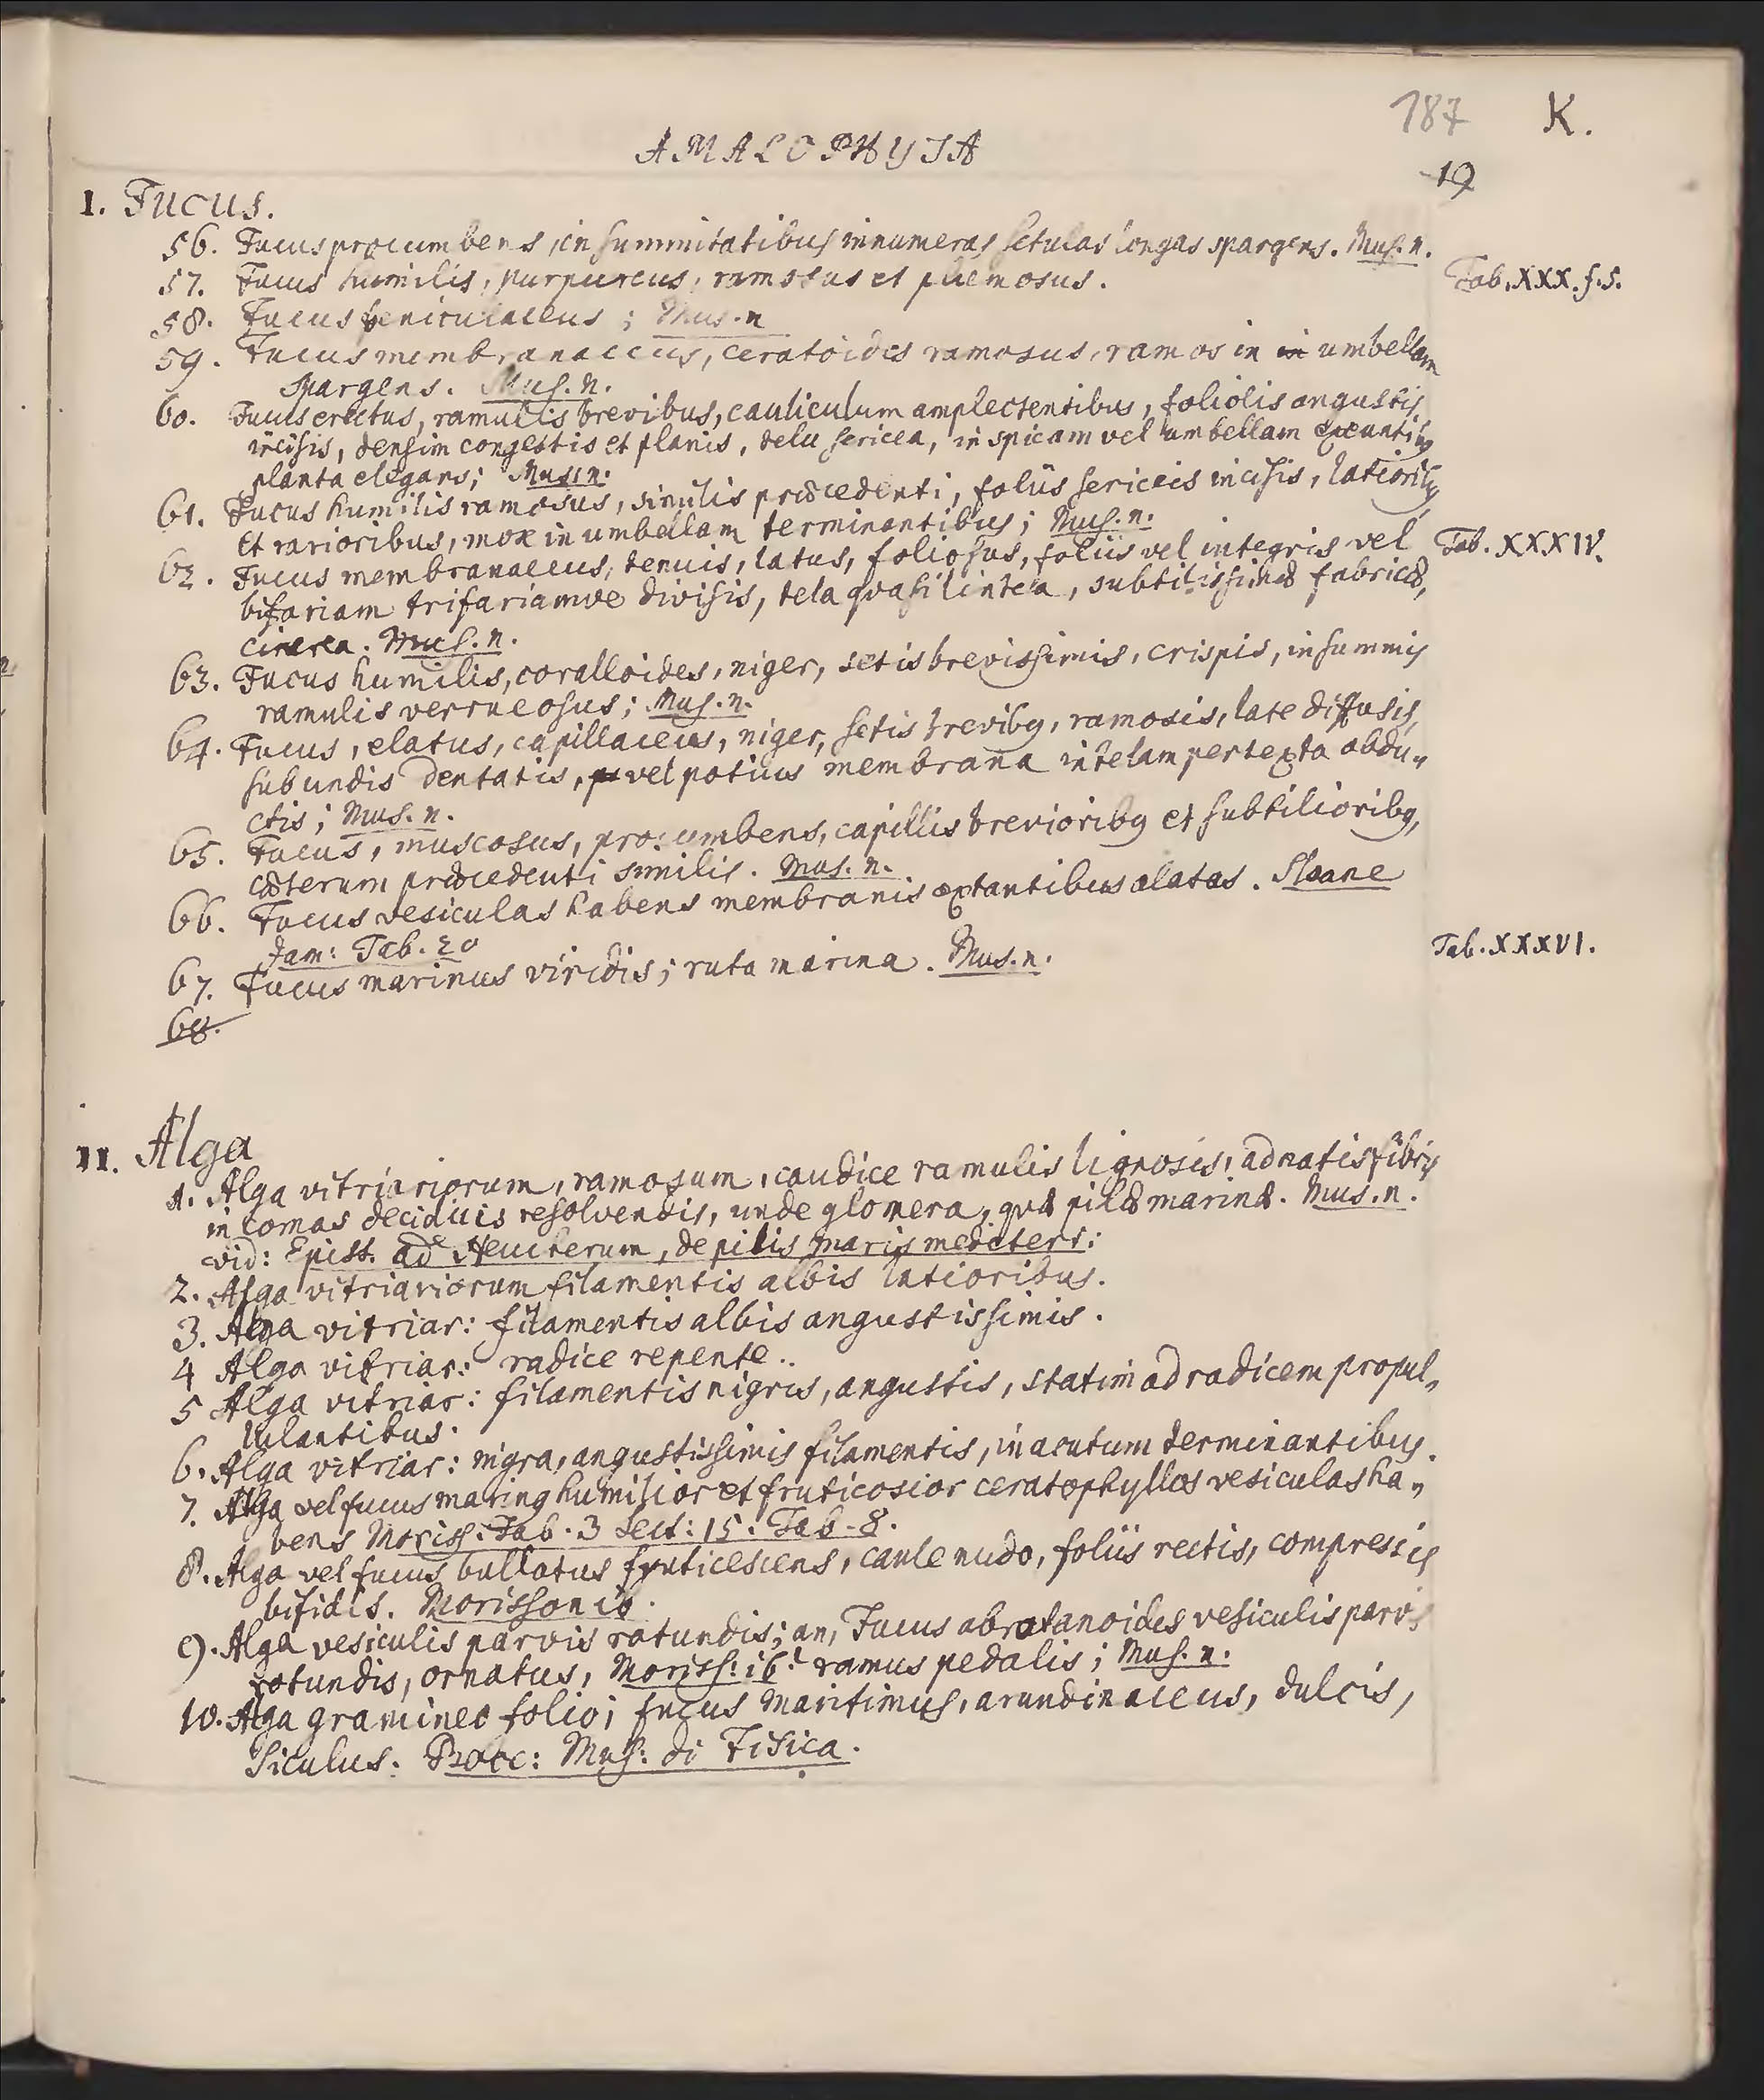 187 K.
AMALOPHYTA
19
I. Fucus.
56. Fucus procumbens, in summitatibus innumeras setulas longas spargens. Mus. n.
57. Fucus humilis, purpureus, ramosus et plumosus.
Tab. XXX. f. 5.
58. Fucus feniculaceus; Mus. n
59. Fucus membranaceus, ceratoides ramosus, ramos in in umbellam
spargens. Mus. n.
60. Fucus erectus, ramulis brevibus, cauliculum amplectentibus, foliolis angustis,
incisis, densim congestis et planis, tela sericea, in spicam vel umbellam exeuntibus
planta elegans; Mus. n.
61. Fucus humilis ramosus, similis præcedenti, foliis sericeis incisis, latioribus
et rarioribus, mox in umbellam terminantibus; Mus. n.
62. Fucus membranaceus, tenuis, latus, foliosus, foliis vel integris vel
Tab. XXXIV.
bifariam trifariamve divisis, tela quasi lintea, subtilissimæ fabricæ,
cinerea. Mus. n.
63. Fucus humilis, coralloides, niger, setis brevissimis, crispis, in summis
ramulis verrucosus; Mus. n.
64. Fucus, elatus, capillaceus, niger, setis brevibus, ramosis, late diffusis,
sub undis dentatis, vel potius membrana in telam pertexta obdu„
ctis; Mus. n.
65. Fucus, muscosus, procumbens, capillis brevioribus et subtilioribus,
cæterum præcedenti similis. Mus. n.
66. Fucus vesiculas habens membranis extantibus alatas. Sloane
Jam: Tab. 20
Tab. XXXVI.
67. Fucus marinus viridis; ruta marina. Mus. n.
68.
II. Alga
1. Alga vitriariorum, ramosum, caudice ramulis lignosis, adnatis fibris
in comas deciduis resolvendis, unde glomera, quæ pilæ marinæ. Mus. n.
vid: Epist. ad Neucherum, de pilis maris mediterr:
2. Alga vitriariorum filamentis albis latioribus.
3. Alga vitriar: filamentis albis angustissimis.
4 Alga vitriar: radice repente..
5 Alga vitriar: filamentis nigris, angustis, statim ad radicem propul„
lulantibus.
6. Alga vitriar: nigra, angustissimis filamentis, in acutum terminantibus.
7. Alga vel fucus marinus humilior et fruticosior ceratophyllos vesiculas ha„
bens Moriss. Tab. 3 sect: 15. Tab. 8.
8. Alga vel fucus bullatus fruticescens, caule nudo, foliis rectis, compressis
bifidis. Morisson ib.
9. Alga vesiculis parvis rotundis; an, Fucus abrotanoides vesiculis parvis
rotundis, ornatus, Moriss: ib: ramus pedalis; Mus. n.
10. Alga gramineo folio; fucus maritimus, arundinaceus, dulcis,
siculus. Bocc: Mus: di Fisica.